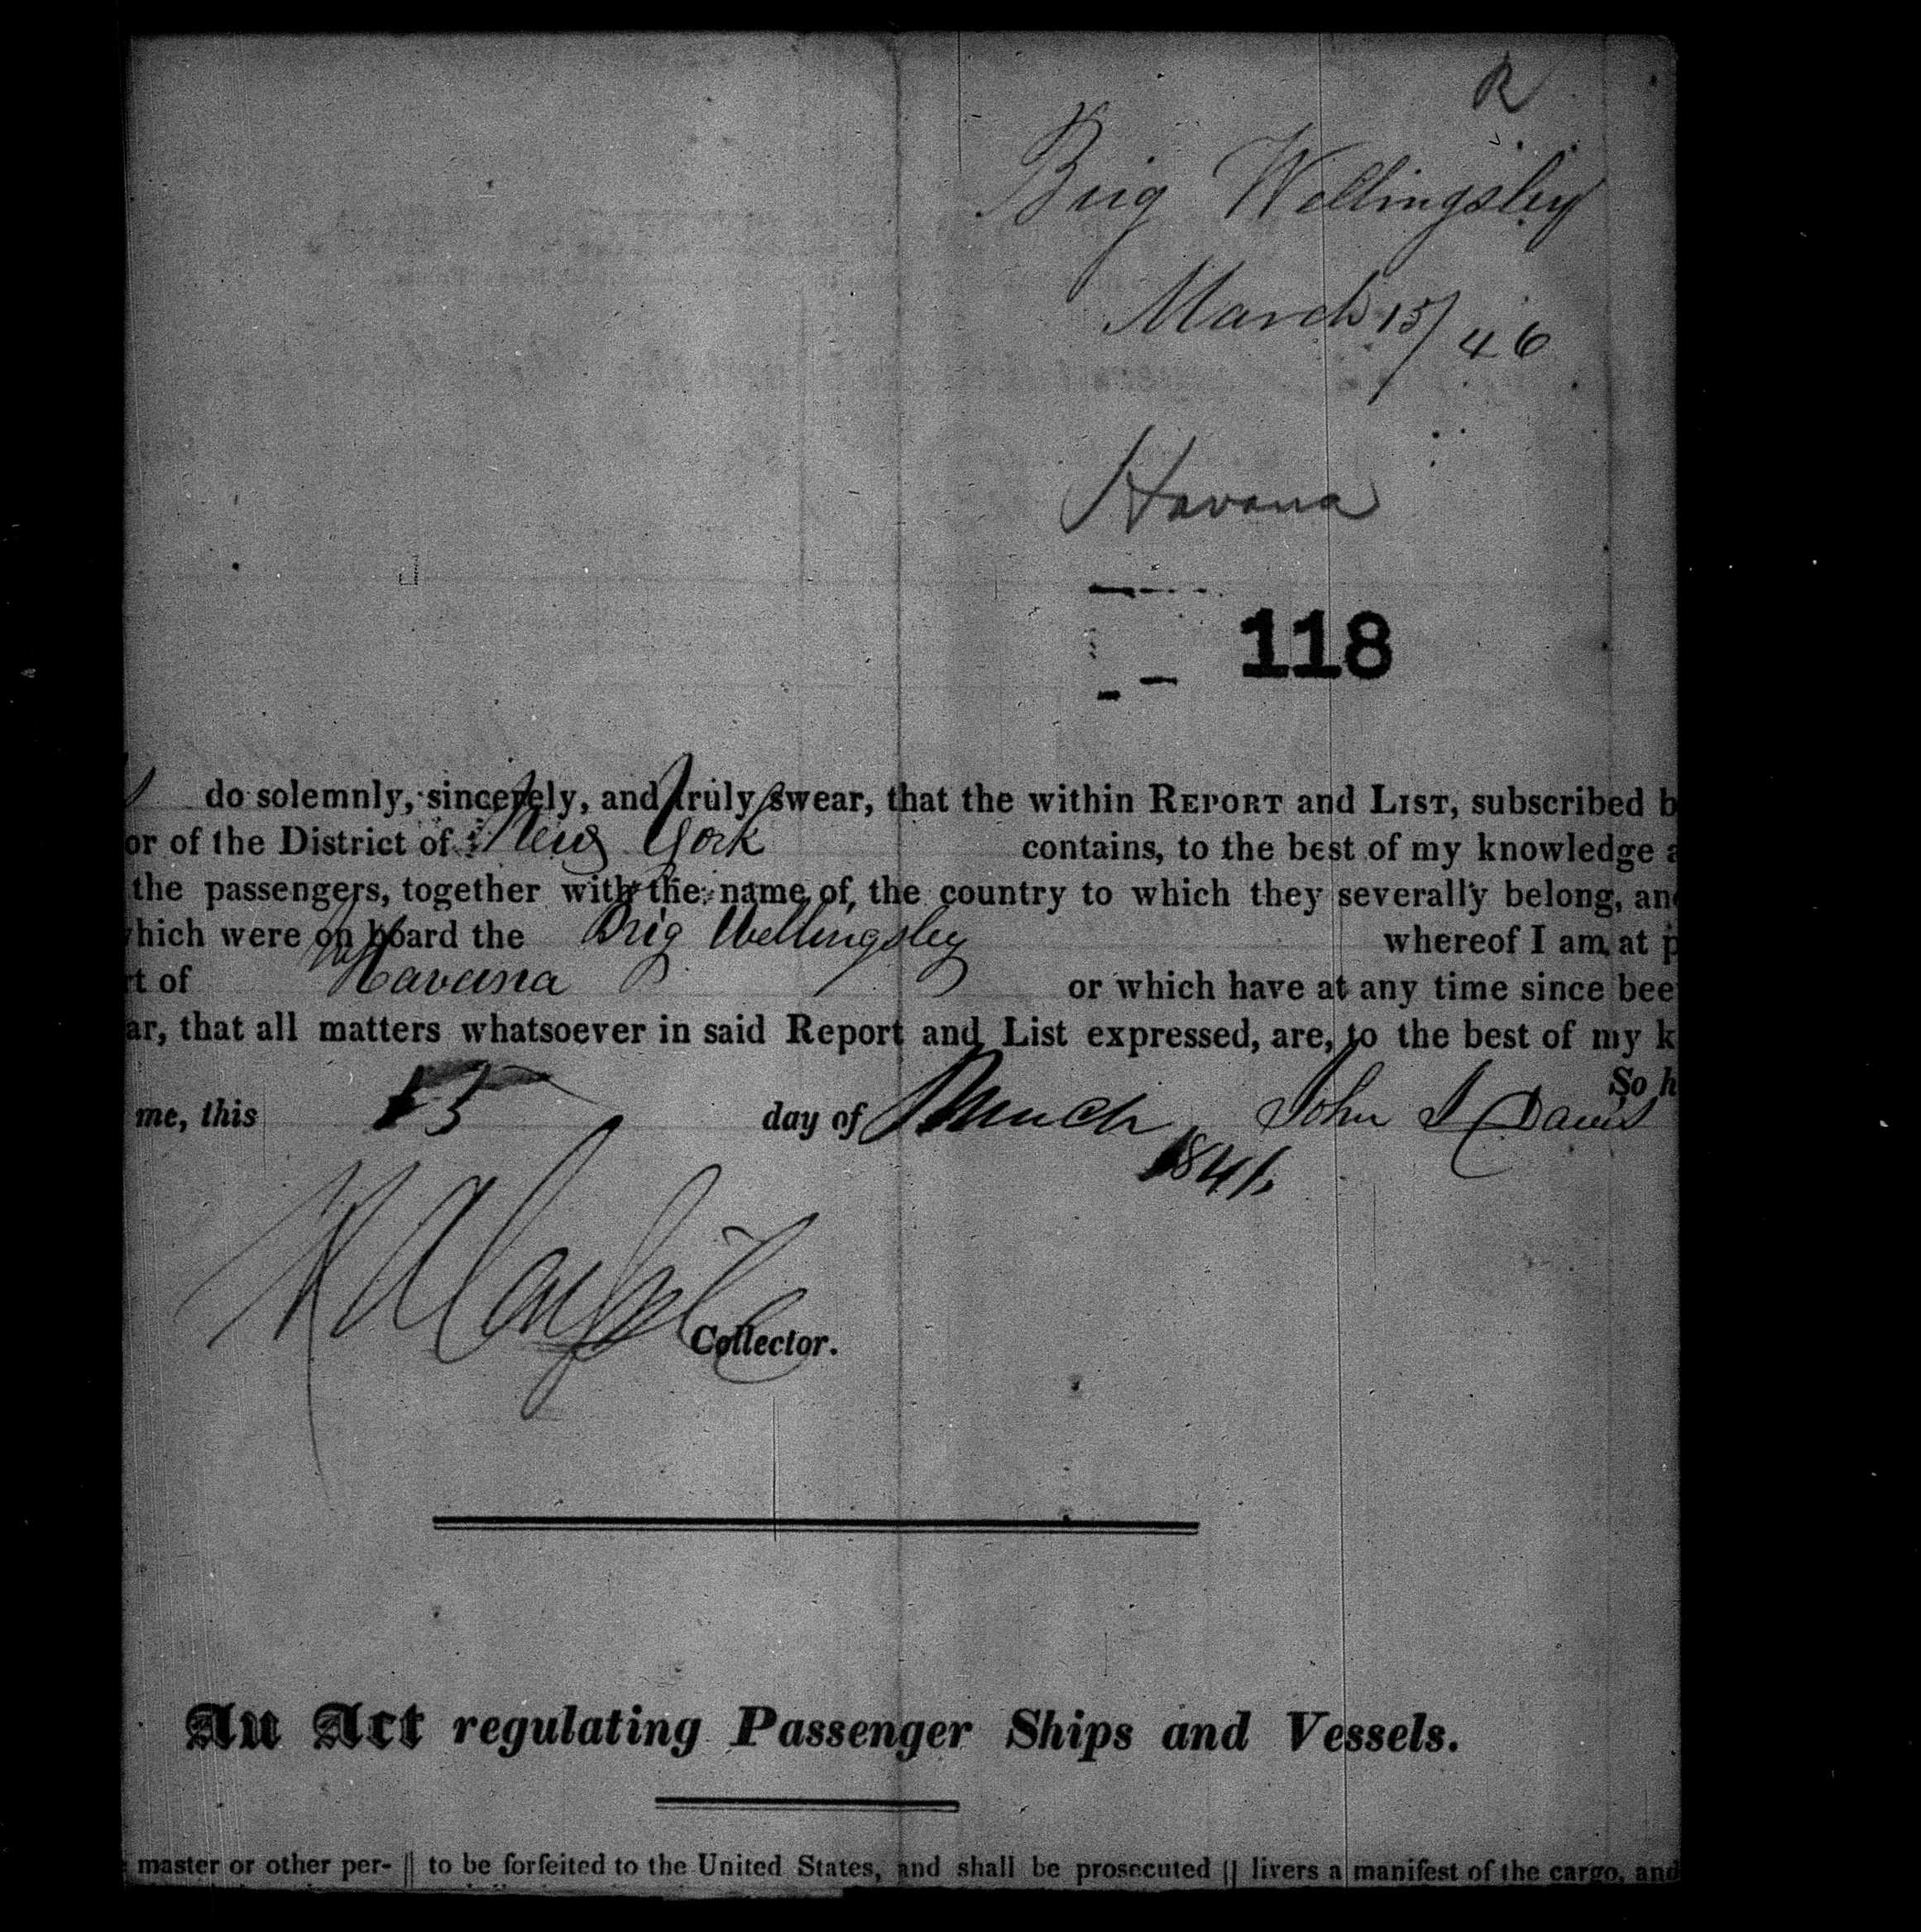 R
Brig Wellingsley
March 15/46
Havana
118
do solemnly, sincerely, and truly swear, that the within REPORT and LIST, subscribed b
or of the District of New York contains, to the best of my knowledge a
the passengers, together with the name of the country to which they severally belong, an
hich were on board the Brig Wellingsley whereof I am at p
t of Havana or which have at any time since bee
ar, that all matters whatsoever in said Report and List expressed, are, to the best of my k
So h
me, this 15 day of March John I Davis
1846
Collector.
An Act regulating Passenger Ships and Vessels.
master or other per- to be forfeited to the United States, and shall be prosecuted livers a manifest of the cargo, and